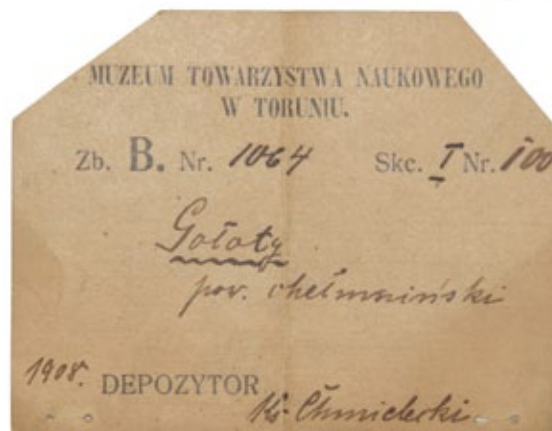 MUZEUM TOWARZYSTWA NAUKOWEGO
W TORUNIU.
Zb. B. Nr. 1064 Skc. I Nr. 100
Gołoty
pow. chełmiński
1908. DEPOZYTOR
Ks. Chmielecki